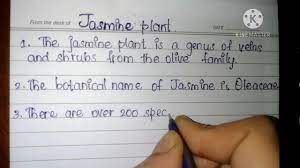 From the desk of
Jasmine plant.
KINEMASTER
1. The jasmine plant is a genus of veins
and shrubs from the olive family.
2. The botanical name of Jasmine is Oleaceae
3. There are over 200 spec